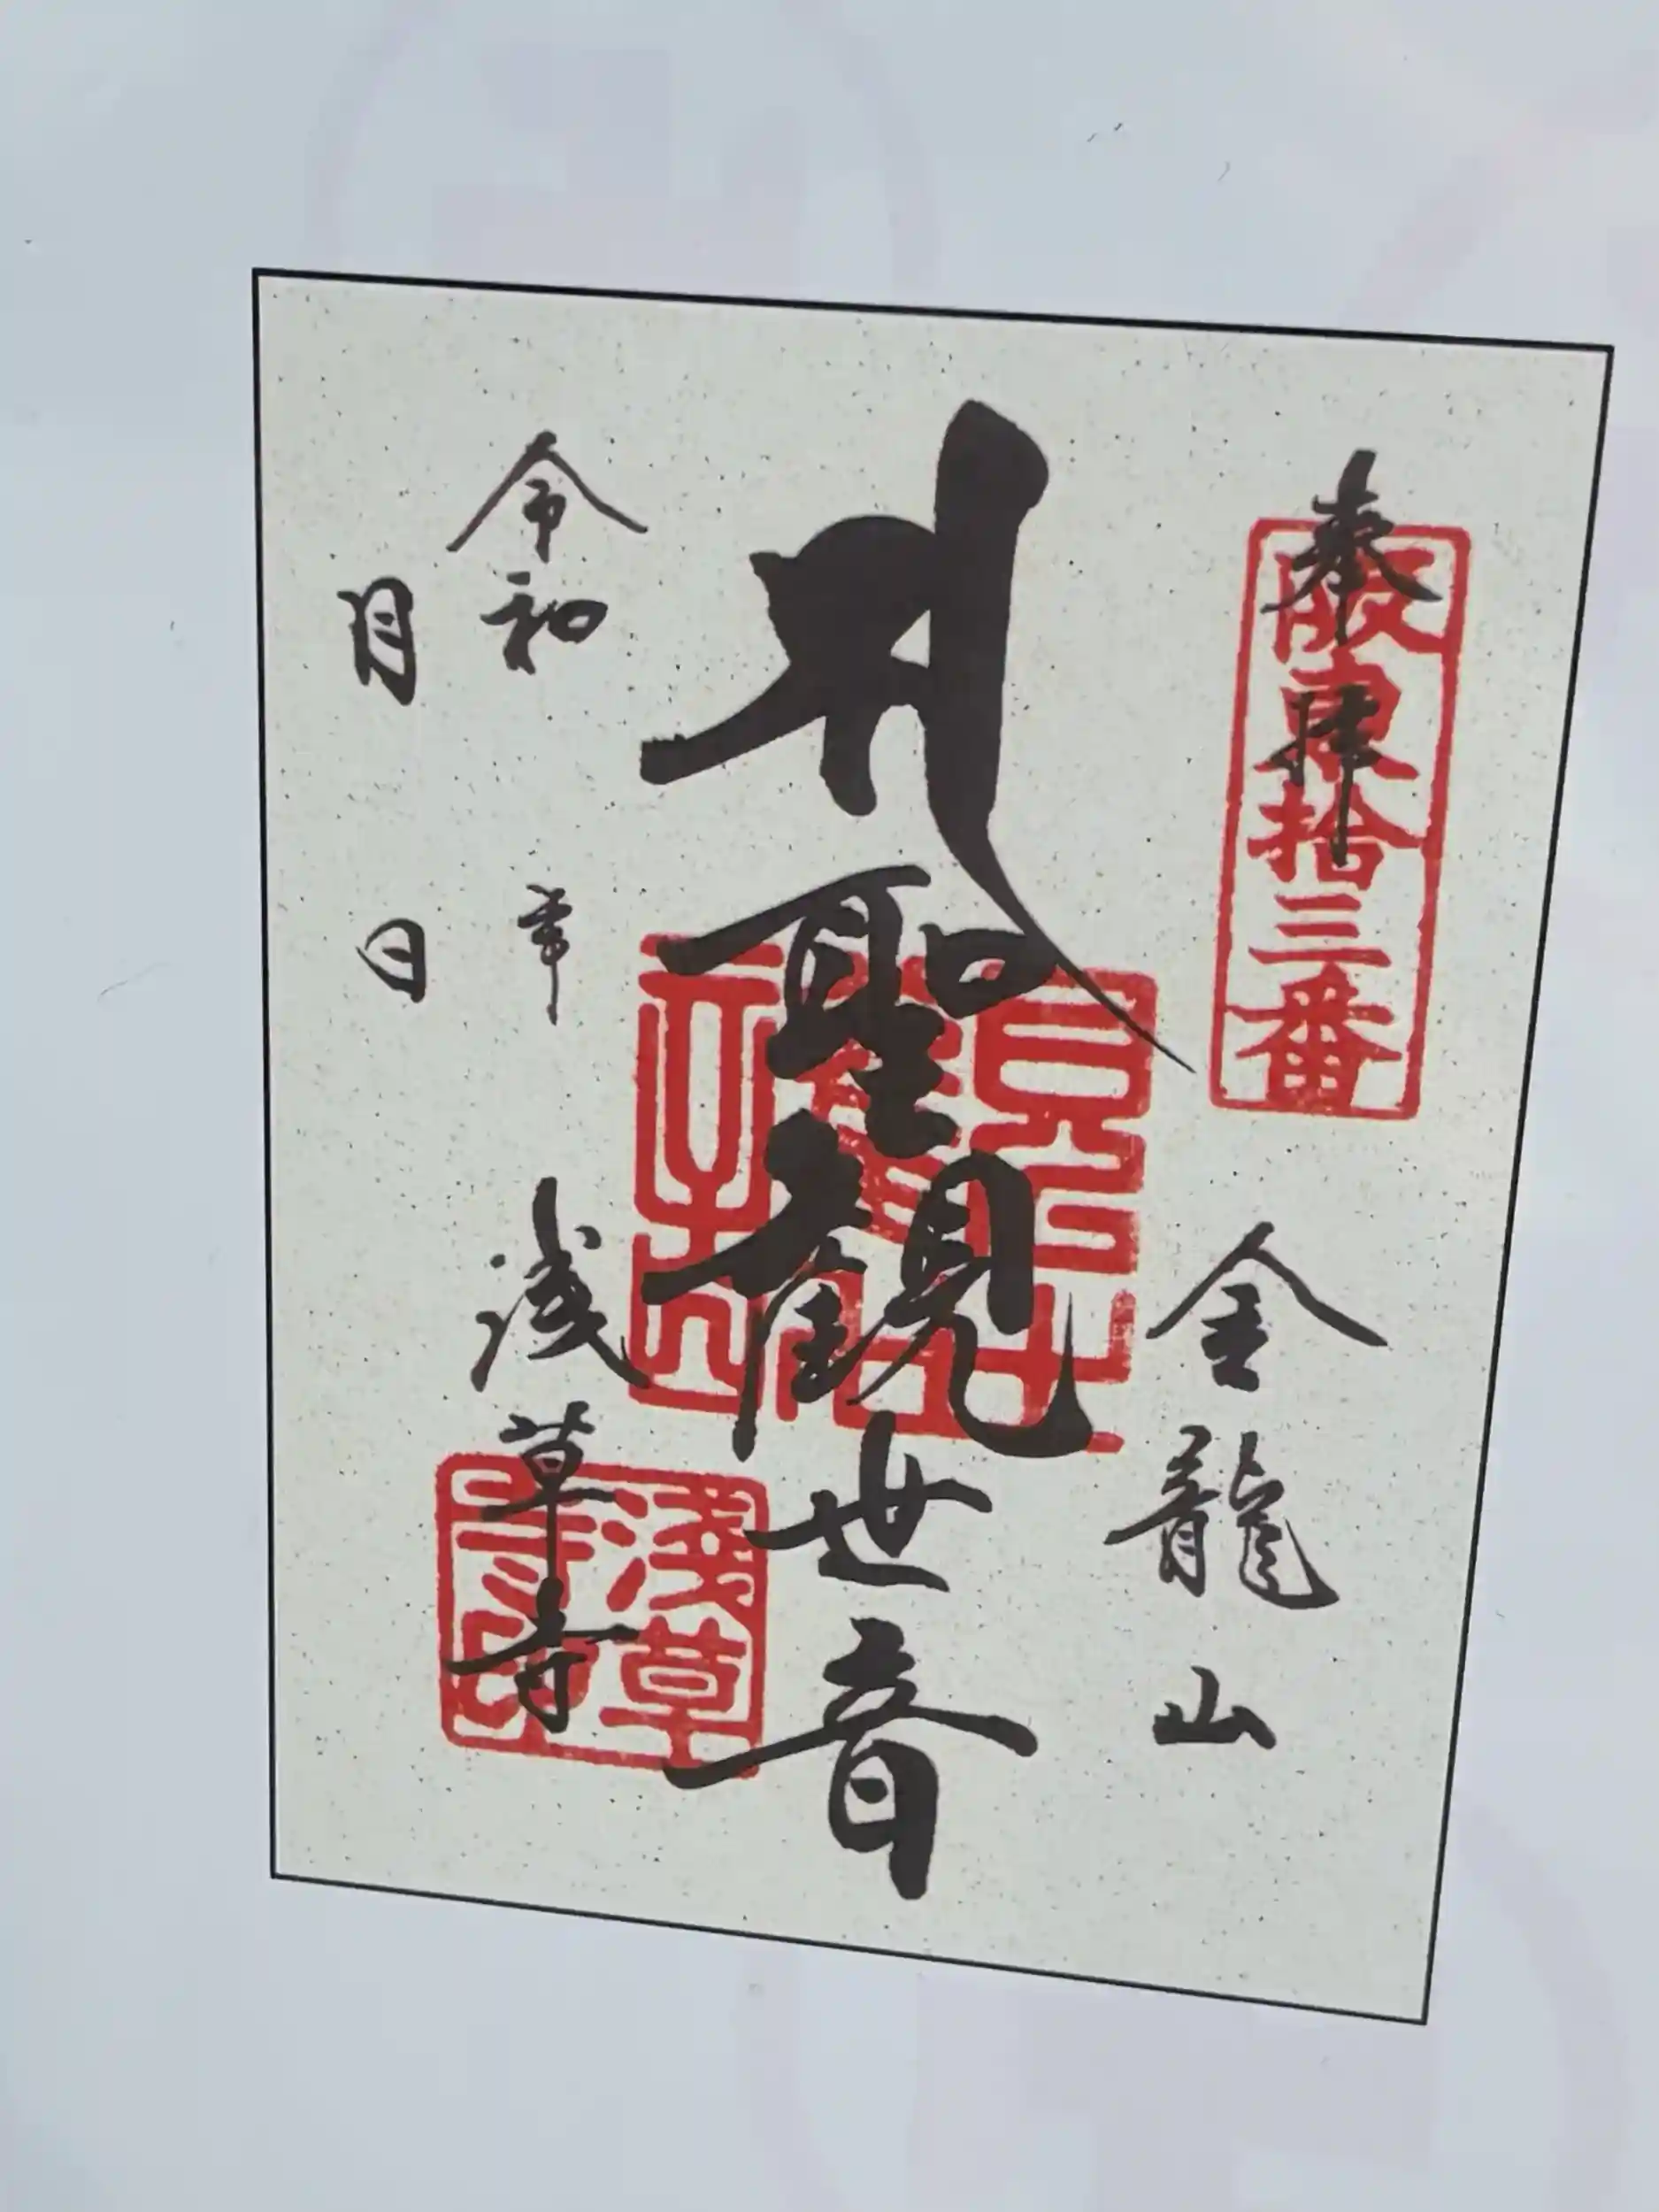 奉拝
坂東拾三番
金龍山
聖観世音
令和 年
月 日
浅草寺
淺草寺印